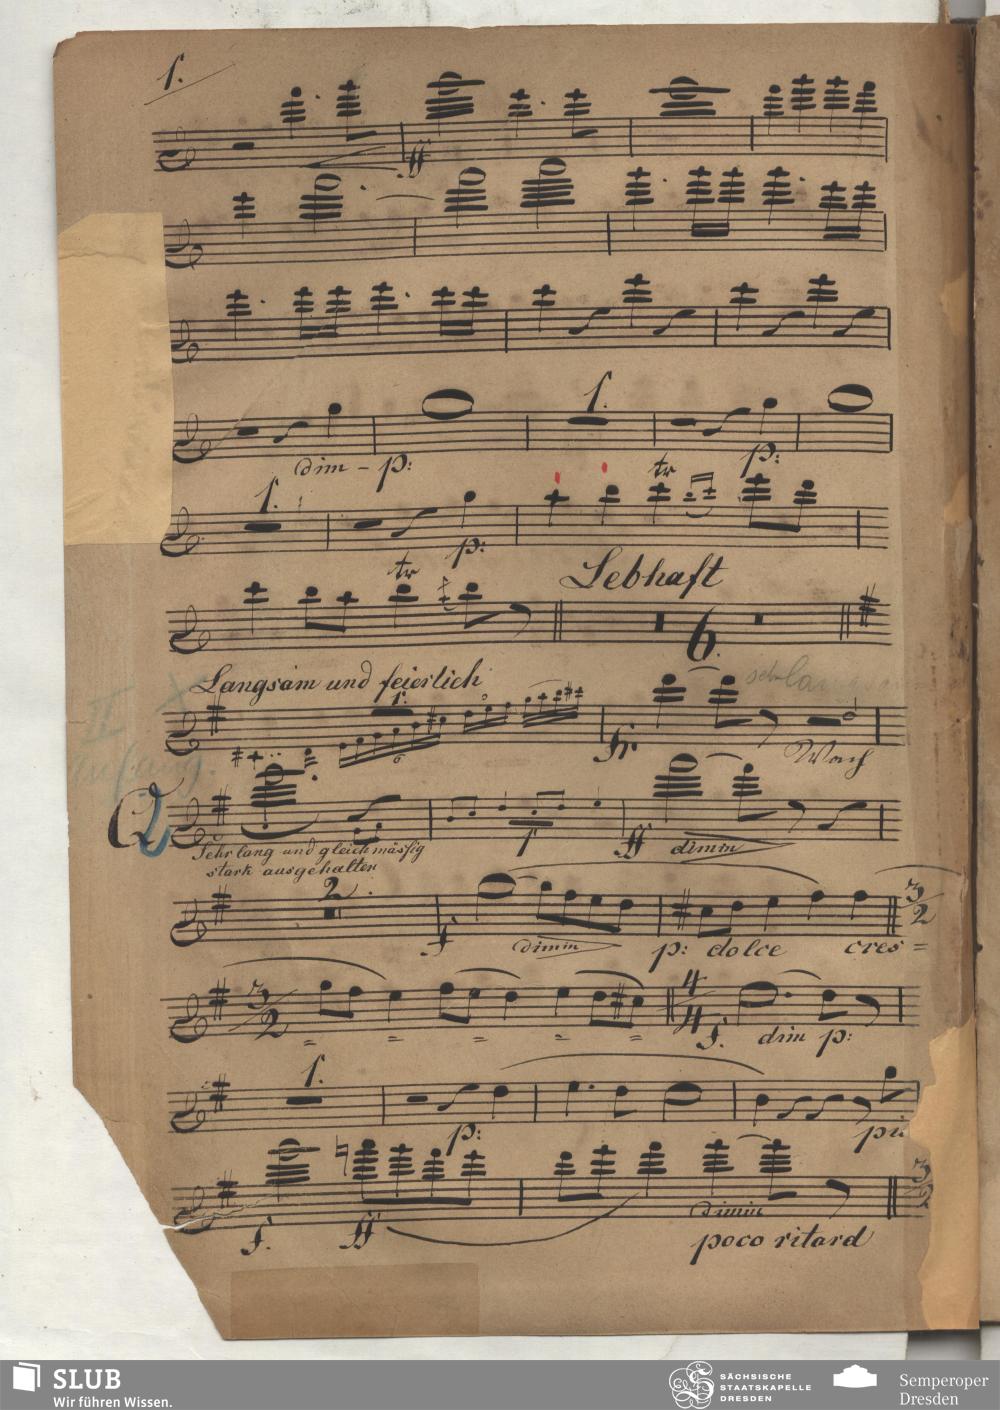 1.
ff
dim - p:
1.
p:
1.
tr
p:
Lebhaft
tr
6.
Langsam und feierlich
1.
fr.
Wach
II
Sehr lang und gleichmässig
stark ausgehalten
1
ff dimin
2
f dimin p: dolce cres =
3/2
3/2
= = = = =
4/4
f. dim p:
1.
p:
3/2
f. ff
dimin
poco ritard
SLUB
Wir führen Wissen.
SÄCHSISCHE
STAATSKAPELLE
DRESDEN
Semperoper
Dresden